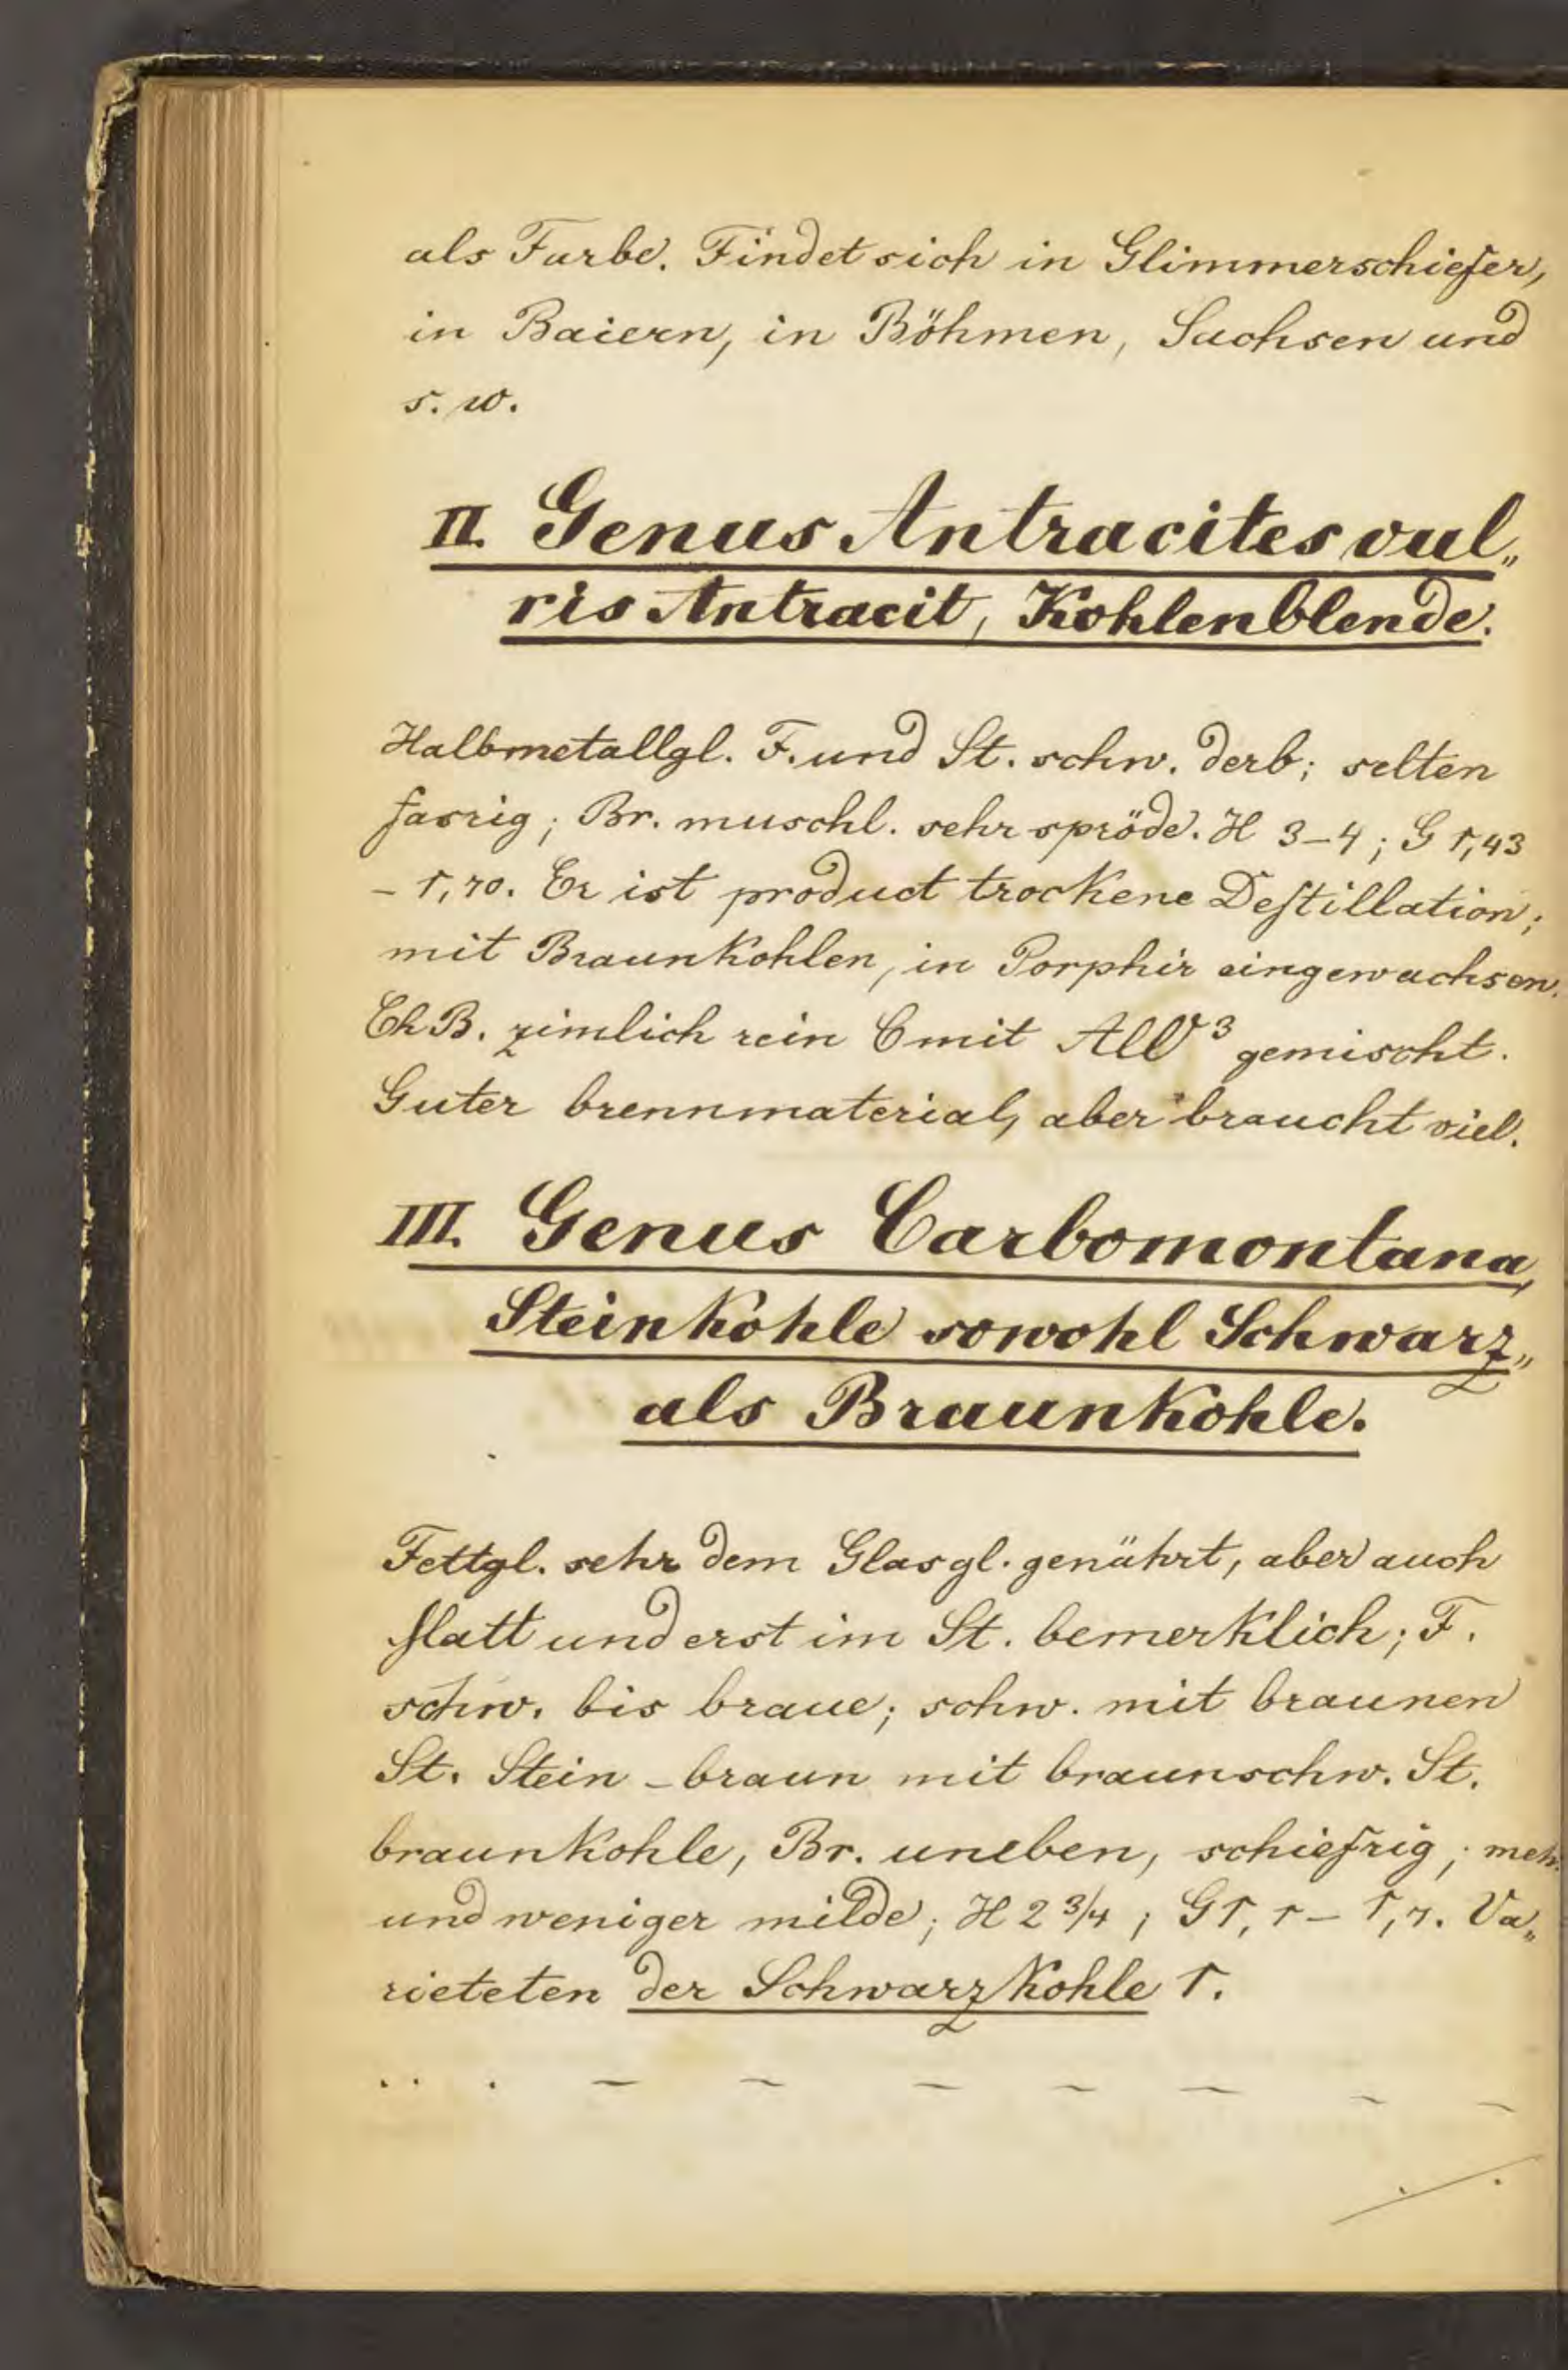 als Farbe. Findet sich in Glimmerschiefer,
in Baiern, in Böhmen, Sachsen und
s. w.
II. Genus Antracites vul„
ris Antracit, Kohlenblende.
Halbmetallgl. F. und St. schw. derb; selten
fasrig; Br. muschl. sehr spröde. H 3–4; G 1,43
– 1,70. Er ist product trockene Destillation;
mit Braunkohlen, in Porphir eingewachsen.
Ch B. zimlich rein C mit gemischt.
Guter brennmaterial, aber braucht viel.
III. Genus Carbomontana,
Steinkohle sowohl Schwarz„
als Braunkohle.
Fettgl. sehr dem Glasgl. genährt, aber auch
Matt und erst im St. bemerklich; F.
schw. bis braue; schw. mit braunen
St. Stein – braun mit braunschw. St.
braunkohle, Br. uneben, schiefrig; mehr
und weniger milde; H 2 3/4; G 1,1 – 1,7. Va„
rieteten der Schwarzkohle 1.